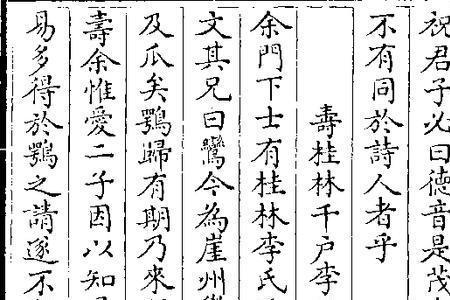 祝君子必曰德音是茂
不有同於詩人者乎
壽桂林千户李
余門下士有桂林李氏
文其兄曰鸞今為崖州
及瓜矣鶚歸有期乃來
壽余惟愛二子因以知
易多得於鶚之請遂不